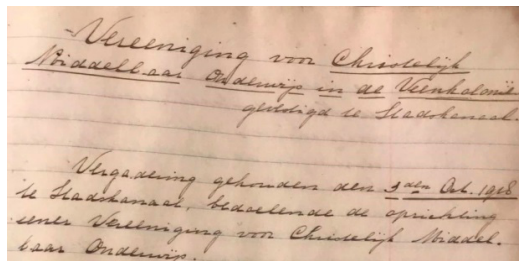 Vereeniging voor Christelijk
Middelbaar Onderwijs in de Veenkoloniën
gevestigd te Stadskanaal.
Vergadering gehouden den 3den Oct. 1918
te Stadskanaal, bedoelende de oprichting
eener Vereeniging voor Christelijk Middel-
baar Onderwijs.